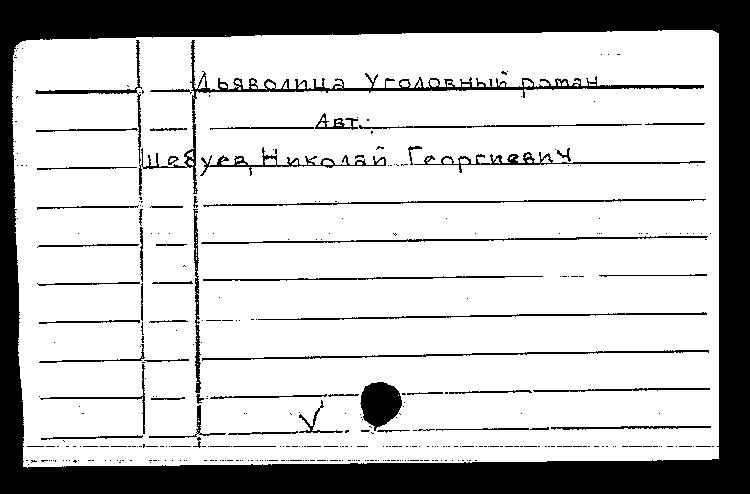 Дьяволица Уголовный роман
Авт.:
Шебуев, Николай Георгиевич